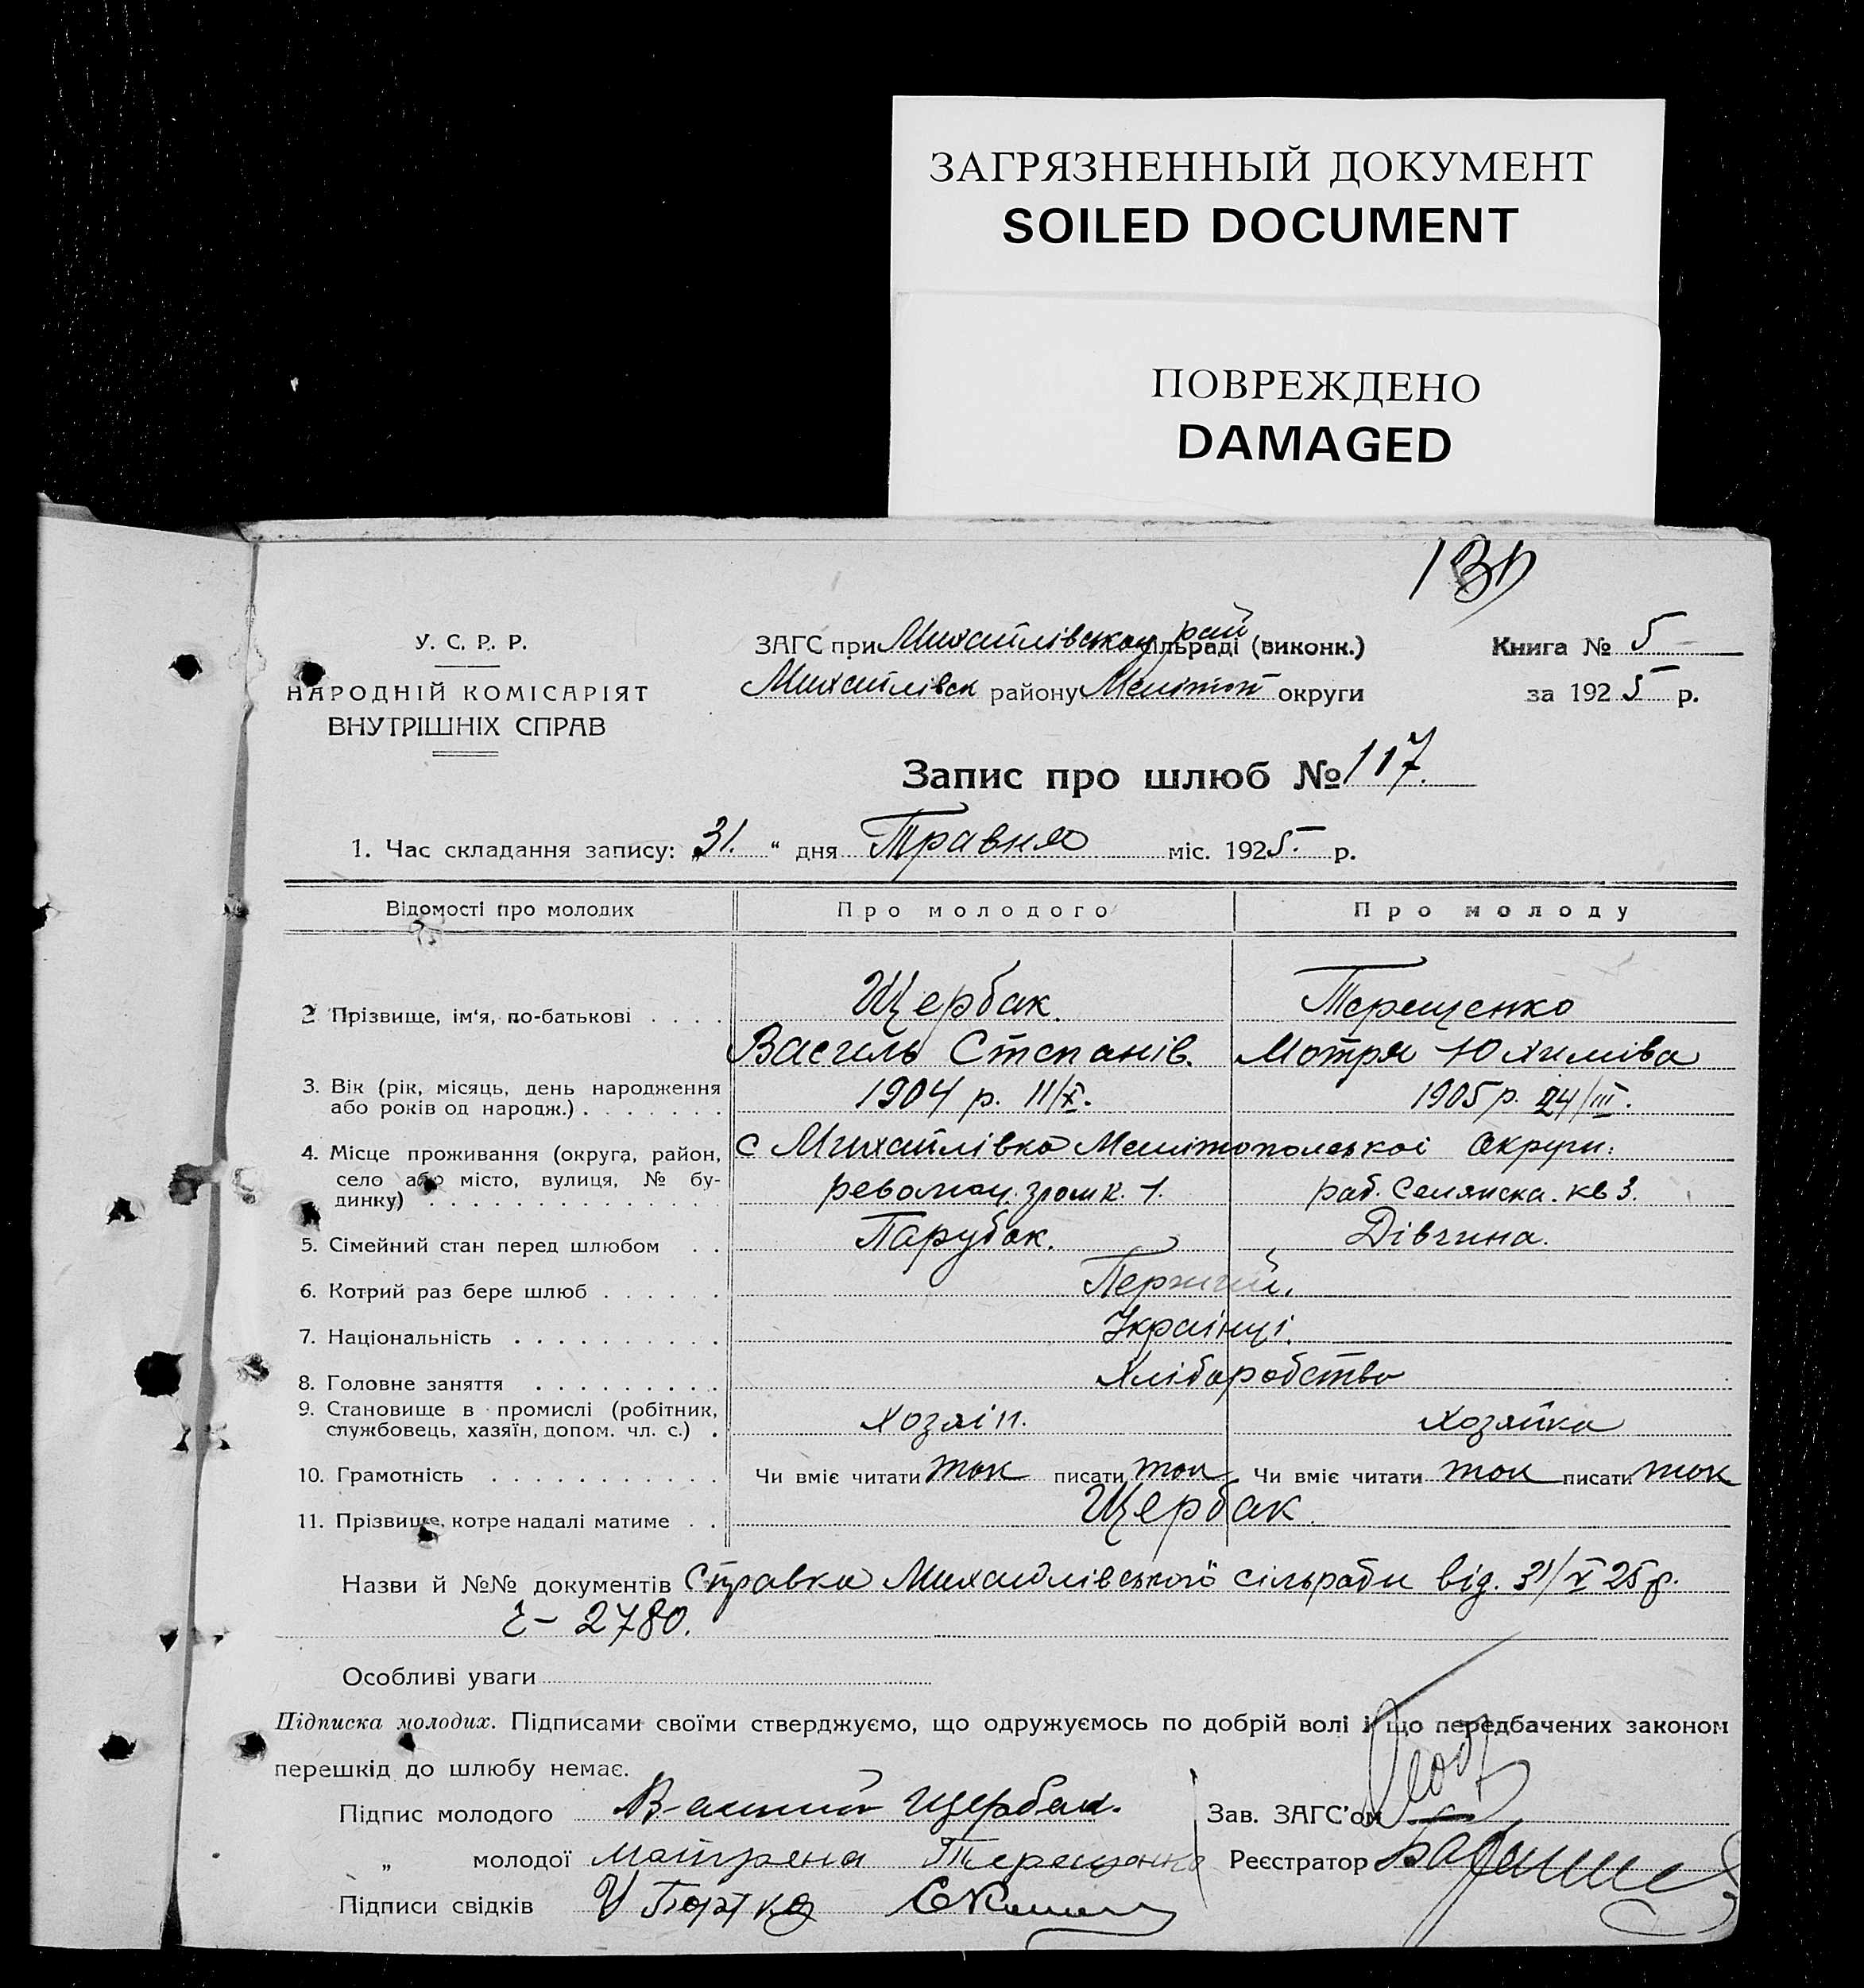 ЗАГРЯЗНЕННЫЙ ДОКУМЕНТ
SOILED DOCUMENT
ПОВРЕЖДЕНО
DAMAGED
У. С. Р. Р.
НАРОДНІЙ КОМІСАРІЯТ
ВНУТРІШНІХ СПРАВ
ЗАГС при Михайлівском рай сільраді (виконк.)
Михайлівск району Меліт округи
Книга № 5
за 1925 р.
Запис про шлюб № 117.
1. Час складання запису: „31." дня Травня міс. 1925. р.
Відомості про молодих Про молодого Про молоду
2 Прізвище, ім'я, по-батькові . . . . Щербак. Терещенко
Василь Степанів. Мотря Юхимівна
3. Вік (рік, місяць, день народження
або років од народж.) . . . . . . . 1904 р. 11/X. 1905 р. 24/III.
4. Місце проживання (округа, район,
село або місто, вулиця, № бу-
динку) . . . . . . . . . . . . . .
с Михайлівка Мелітопольскоі Округи:
революц. 1. раб. Селянска. кв 3.
5. Сімейний стан перед шлюбом . . Парубок. Дівчина.
6. Котрий раз бере шлюб . . . . . . Перший.
7. Національність . . . . . . . . . . Українці.
8. Головне заняття . . . . . . . . . Хліборобство
9. Становище в промислі (робітник,
службовець, хазяїн, допом. чл. с.) . Хозяін. Хозяйка
10. Грамотність . . . . . . . . . . . Чи вміє читати так писати так Чи вміє читати так писати так
11. Прізвище, котре надалі матиме . . Щербак.
Назви й №№ документів Справка Михайлівської сільради від. 31/V 25 р.
2780.
Особливі уваги
Підписка молодих. Підписами своїми стверджуємо, що одружуємось по добрій волі і що передбачених законом
перешкід до шлюбу немає.
Підпис молодого Щербак.
„ молодої Мотрена Терещенко
Підписи свідків
Зав. ЗАГС'ом
Реєстратор